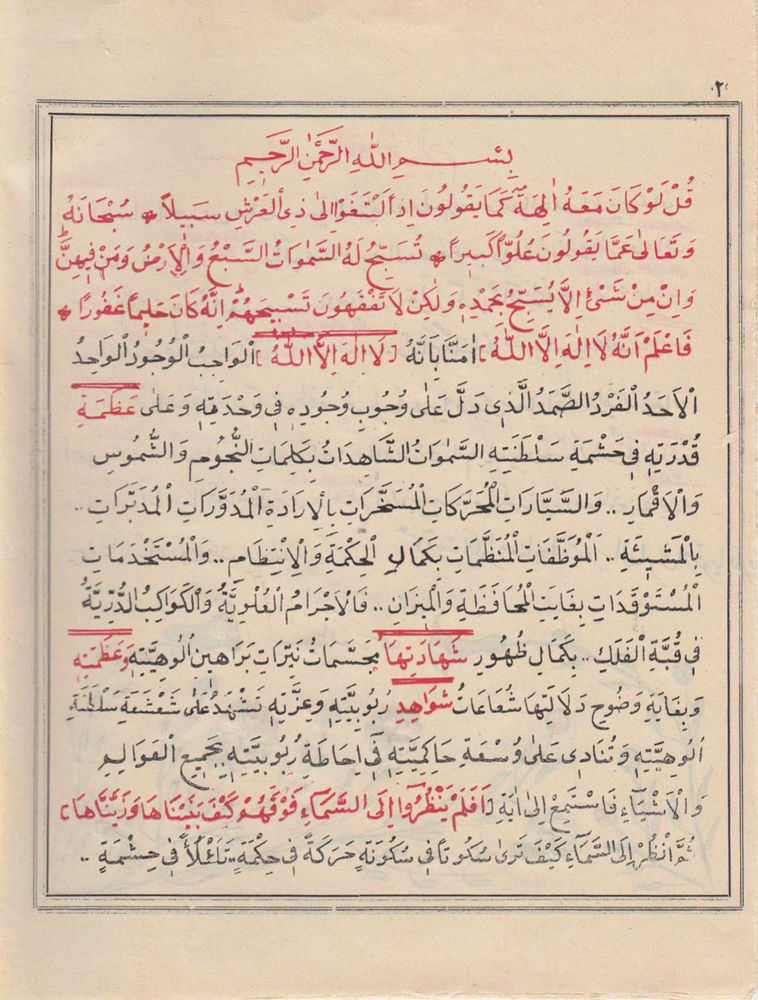 ٢
بِسْمِ اللّٰهِ الرَّحْمٰنِ الرَّحِيمِ
قُلْ لَوْ كَانَ مَعَهُ اٰلِهَةٌ كَمَا يَقُولُونَ اِذًا لَابْتَغَوْا اِلٰى ذِى الْعَرْشِ سَبِيلاً ٭ سُبْحَانَهُ
وَتَعَالٰى عَمَّا يَقُولُونَ عُلُوًّا كَبِيرًا ٭ تُسَبِّحُ لَهُ السَّمٰوَاتُ السَّبْعُ وَالْاَرْضُ وَمَنْ فِيهِنَّ
وَاِنْ مِنْ شَىْءٍ اِلَّا يُسَبِّحُ بِحَمْدِهِ وَلٰكِنْ لَا تَفْقَهُونَ تَسْبِيحَهُمْ اِنَّهُ كَانَ حَلِيمًا غَفُورًا ٭
فَاعْلَمْ اَنَّهُ لَا اِلٰهَ اِلَّا اللّٰهُ] اٰمَنَّا بِاَنَّهُ [لَا اِلٰهَ اِلَّا اللّٰهُ] اَلْوَاجِبُ الْوُجُودُ الْوَاحِدُ
الْاَحَدُ الْفَرْدُ الصَّمَدُ الَّذِى دَلَّ عَلٰى وُجُوبِ وُجُودِهِ فِى وَحْدَتِهِ وَعَلٰى عَظَمَةِ
قُدْرَتِهِ فِى حَشْمَةِ سَلْطَنَتِهِ السَّمٰوَاتُ الشَّاهِدَاتُ بِكَلِمَاتِ النُّجُومِ وَالشُّمُوسِ
وَالْاَقْمَارِ .. وَالسَّيَّارَاتِ الْمُحَرَّكَاتِ الْمُسَخَّرَاتِ بِالْاِرَادَةِ الْمُدَوَّرَاتِ الْمُدَبَّرَاتِ ..
بِالْمَشِيئَةِ .. اَلْمُوَظَّفَاتِ الْمُنَظَّمَاتِ بِكَمَالِ الْحِكْمَةِ وَالْاِنْتِظَامِ .. وَالْمُسْتَخْدَمَاتِ
الْمُسْتَوْقَدَاتِ بِغَايَتِ الْمُحَافَظَةِ وَالْمِيزَانِ .. فَالْاَجْرَامُ الْعُلْوِيَّةُ وَالْكَوَاكِبُ الدُّرِّيَّةُ
فِى قُبَّةِ الْفَلَكِ .. بِكَمَالِ ظُهُورِ شَهَادَتِهَا مُجَسَّمَاتُ نَيِّرَاتِ بَرَاهِينِ اُلُوهِيَّتِهِ وَعَظَمَتِهِ
وَبِغَايَةِ وُضُوحِ دَلَالَتِهَا شُعَاعَاتُ شَوَاهِدِ رُبُوبِيَّتِهِ وَعِزَّتِهِ تَشْهَدُ عَلٰى شَعْشَعَةِ سَلْطَنَةِ
اُلُوهِيَّتِهِ وَتُنَادِى عَلٰى وُسْعَةِ حَاكِمِيَّتِهِ فِى اِحَاطَةِ رُبُوبِيَّتِهِ بِجَمِيعِ الْعَوَالِمِ
وَالْاَشْيَاءِ فَاسْتَمِعْ اِلٰى اٰيَةِ [اَفَلَمْ يَنْظُرُوا اِلَى السَّمَاءِ فَوْقَهُمْ كَيْفَ بَنَيْنَاهَا وَزَيَّنَّاهَا]
ثُمَّ انْظُرْ اِلَى السَّمَاءِ كَيْفَ تَرٰى سُكُوتًا فِى سُكُونَةٍ حَرَكَةً فِى حِكْمَةٍ .. تَلَأْلُأً فِى حِشْمَةٍ ..